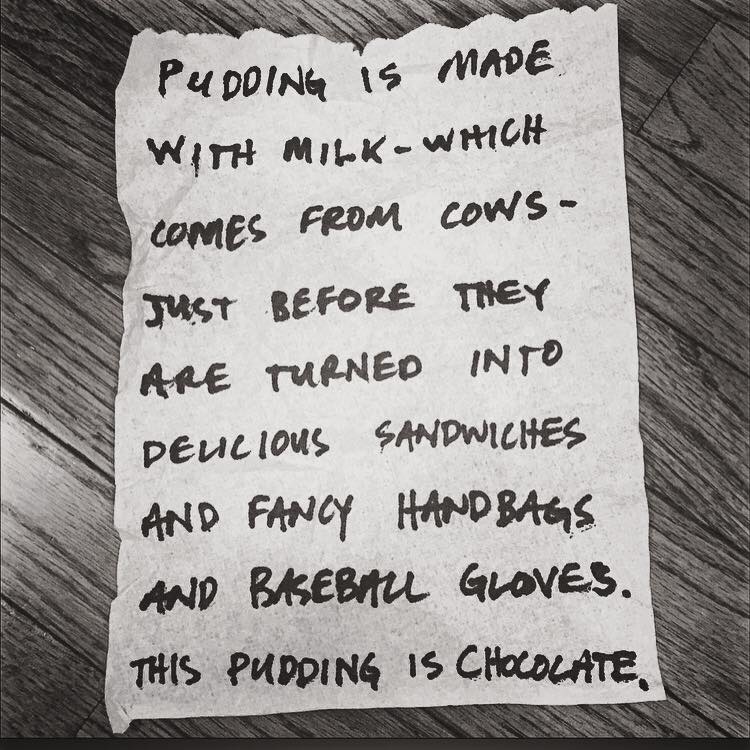 PUDDING IS MADE
WITH MILK-WHICH
COMES FROM COWS-
JUST BEFORE THEY
ARE TURNED INTO
DELICIOUS SANDWICHES
AND FANCY HANDBAGS
AND BASEBALL GLOVES.
THIS PUDDING IS CHOCOLATE.